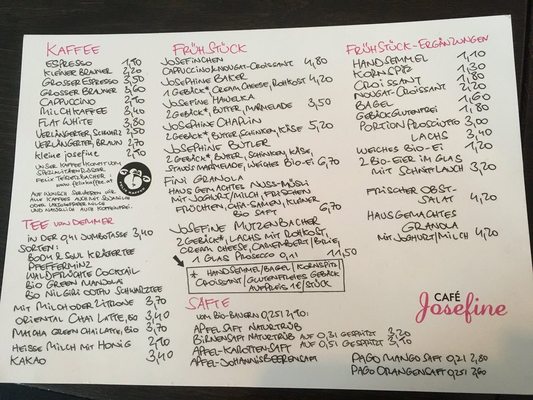 KAFFEE
ESPRESSO 1,90
KLEINER BRAUNER 2,20
GROSSER ESPRESSO 3,50
GROSSER BRAUNER 3,60
CAPPUCCINO 2,90
MILCHKAFFEE 3,40
FLAT WHITE 3,80
VERLÄNGERTER, SCHWARZ 2,50
VERLÄNGERTER, BRAUN 2,70
kleine josefine 2,90
UNSER KAFFEE KOMMT VOM
SPEZIALITÄTENRÖSTER
FELIX TEIRETZBACHER
www.felixkaffee.at
AUF WUNSCH SERVIEREN WIR
ALLE KAFFEES AUCH MIT SOJAMILCH
ODER LAKTOSEFREIER MILCH
UND NATÜRLICH AUCH KOFFEINFREI.
TEE VON DEMMER
IN DER 0,4l JUMBOTASSE 3,40
SORTEN:
BODY & SOUL KRÄUTERTEE
PFEFFERMINZ
WALDFRÜCHTE COCKTAIL
BIO GREEN MANDOLAS
BIO NILGIRI OOTHU SCHWARZTEE
MIT MILCH ODER ZITRONE 3,70
ORIENTAL CHAI LATTE, BIO 3,40
MATCHA GREEN CHAI LATTE, BIO 3,70
HEISSE MILCH MIT HONIG 2,90
KAKAO 3,40
FRÜHSTÜCK
JOSEFINCHEN
CAPPUCCINO & NOUGAT-CROISSANT 4,80
JOSEPHINE BAKER
1 GEBÄCK*, CREAM CHEESE, ROHKOST 4,20
JOSEFINE HAWELKA
2 GEBÄCK*, BUTTER, MARMELADE 3,50
JOSEPHINE CHAPLIN
2 GEBÄCK*, BUTTER, SCHINKEN, KÄSE 5,20
JOSEPHINE BUTLER
2 GEBÄCK*, BUTTER, SCHINKEN, KÄSE,
STAUD'S MARMELADE, WEICHES BIO-EI 6,70
FINI GRANOLA
HAUSGEMACHTES NUSS-MÜSLI
MIT JOGHURT/MILCH, FRISCHEN
FRÜCHTEN, CHIA-SAMEN, KLEINER
BIO SAFT 6,70
JOSEFINE MUTZENBACHER
2 GEBÄCK*, LACHS MIT ROHKOST,
CREAM CHEESE, CAMEMBERT/BRIE,
1 GLAS PROSECCO 0,1l 11,50
* HANDSEMMEL/BAGEL/KORNSPITZ/
CROISSANT/GLUTENFREIES GEBÄCK
AUFPREIS 1€/STÜCK
SÄFTE
VOM BIO-BAUERN 0,25l 2,90:
APFELSAFT NATURTRÜB
BIRNENSAFT NATURTRÜB AUF 0,3l GESPRITZT 3,20
APFEL-KAROTTENSAFT AUF 0,5l GESPRITZT 3,40
APFEL-JOHANNISBEERENSAFT
FRÜHSTÜCK-ERGÄNZUNGEN
HANDSEMMEL 1,10
KORNSPITZ 1,30
CROISSANT 1,80
NOUGAT-CROISSANT 2,20
BAGEL 1,60
GEBÄCK GLUTENFREI 1,80
PORTION PROSCIUTTO 3,00
LACHS 3,40
WEICHES BIO-EI 1,20
2 BIO-EIER IM GLAS
MIT SCHNITTLAUCH 3,20
FRISCHER OBST-
SALAT 4,10
HAUSGEMACHTES
GRANOLA
MIT JOGHURT/MILCH 4,20
CAFÉ
Josefine
PAGO MANGOSAFT 0,2l 2,80
PAGO ORANGENSAFT 0,25l 2,60